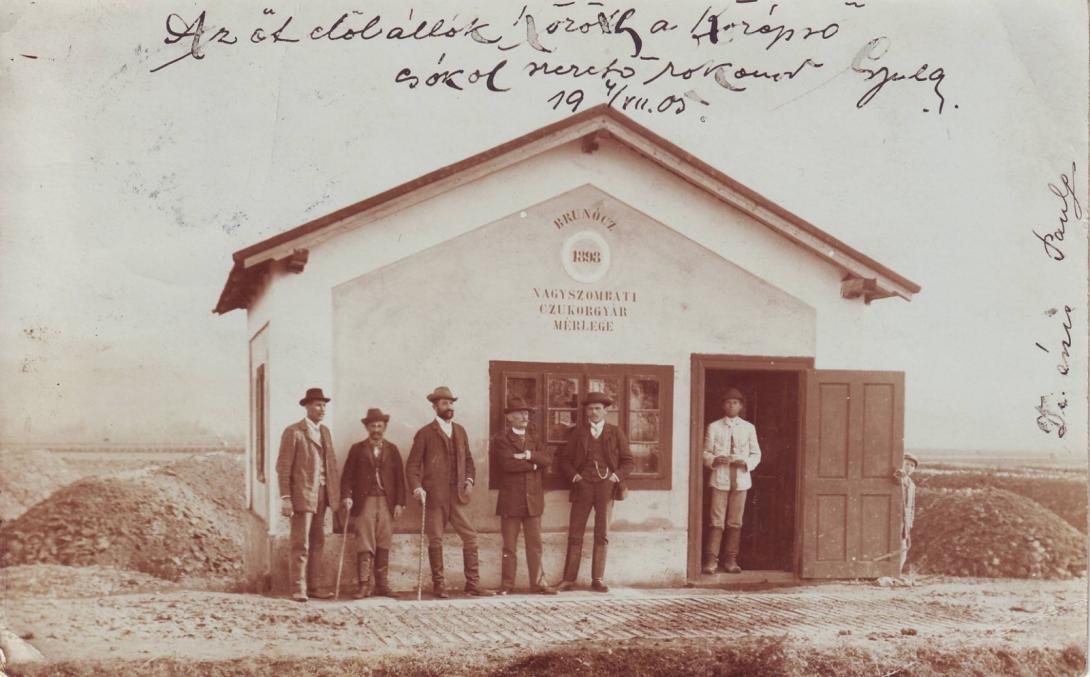 Az öt elől állók között a középső
csókol szerető rokonod Gyula.
19 4/VII. 05.
BRUNÓCZ
1898
NAGYSZOMBATI
CZUKORGYÁR
MÉRLEGE